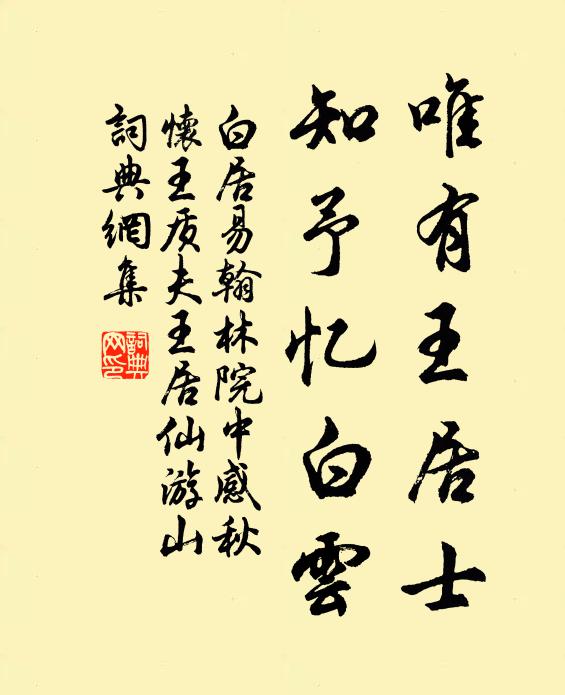 唯有王居士
知予忆白雲
白居易翰林院中感秋
懷王质夫王居仙游山
詞典網集
詞典網印